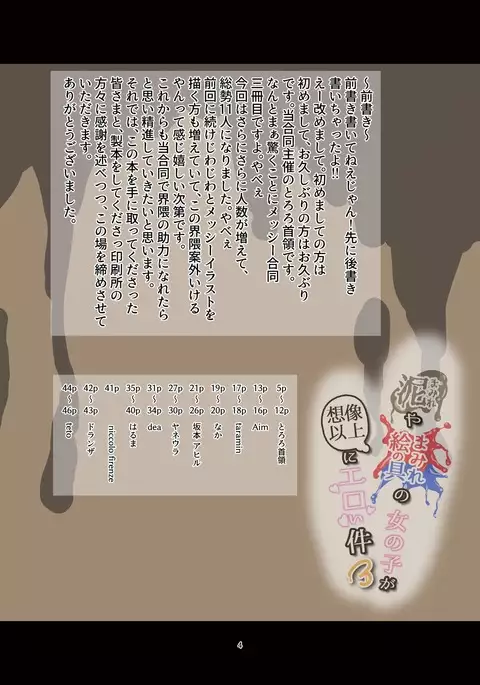 ~前書き~
前書き書いてねえじゃん!先に後書き
書いちゃったよ!!
えー改めまして。初めましての方は
初めまして、お久しぶりの方はお久ぶり
です。当合同主催のとろろ首領です。
なんとまぁ驚くことにメッシー合同
三冊目ですよ。やべぇ
今回はさらにさらに人数が増えて、
総勢11人になりました。やべぇ
前回に続けじわじわとメッシーイラストを
描く方も増えていて、この界隈案外いける
やんって感じ嬉しい次第です。
これからも当合同で界隈の助力になれたら
と思い精進していきたいと思います。
それでは、この本を手に取ってくださった
皆さまと、製本をしてくださっ印刷所の
方々に感謝を述べつつ、この場を締めさせて
いただきます。
ありがとうございました。
泥まみれや
絵の具まみれの
女の子が
想像以上に
エロい件
3
5p~12p とろろ首領
13p~16p Aim
17p~18p taramin
19p~20p なか
21p~26p 坂本アヒル
27p~30p ヤネウラ
31p~34p dea
35p~40p はるま
41p niccolo firenze
42p~43p ドランザ
44p~46p Teto
4